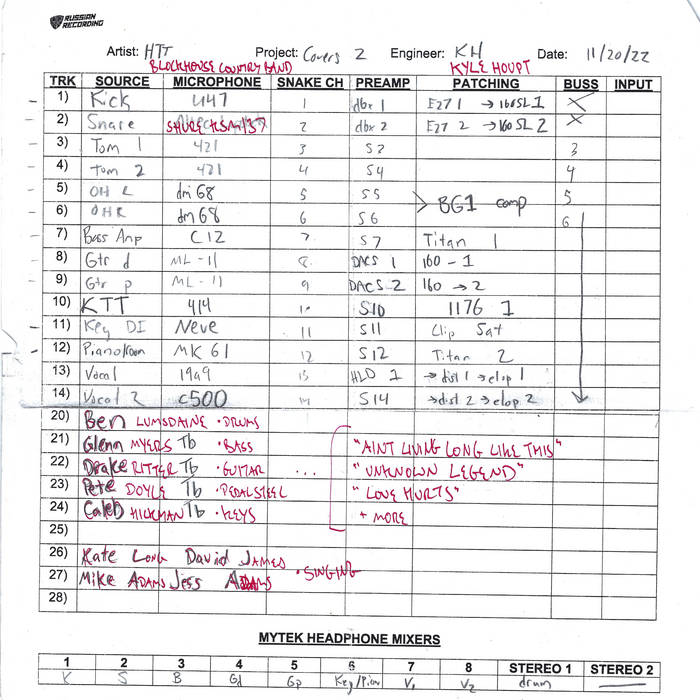 RUSSIAN
RECORDING
Artist: HTT Project: Covers 2 Engineer: KH Date: 11/20/22
BLOCKHOUSE COUNTRY BAND KYLE HOUPT
TRK SOURCE MICROPHONE SNAKE CH PREAMP PATCHING BUSS INPUT
1) Kick U47 1 dbx 1 EQ7 1 → 160SL 1 X
2) Snare SHURE KSM137 2 dbx 2 EQ7 2 → 160 SL 2 X
3) Tom 1 421 3 S2 3
4) Tom 2 421 4 S4 4
5) OH L dm 68 5 S5 > BG1 comp 5
6) OHR dm 68 6 S6 6
7) Bass Amp C12 7 S7 Titan 1
8) Gtr d ML-11 8 DACS 1 160 - 1
9) Gtr p ML-11 9 DACS 2 160 → 2
10) KTT 414 10 S10 1176 1
11) Key DI Neve 11 S11 Clip Sat
12) PianoRoom MK 61 12 S12 Titan 2
13) Vocal 1949 13 HLD 1 → dist 1 → clop 1
14) Vocal 2 C500 14 S14 → dist 2 → clop 2
20) Ben LUMSDAINE • DRUMS
21) Glenn MYERS Tb • BASS "AINT LIVING LONG LIKE THIS"
22) Drake RITTER Tb • GUITAR ... "UNKNOWN LEGEND"
23) Pete DOYLE Tb • PEDAL STEEL "LOVE HURTS"
24) Caleb HICKMAN Tb • KEYS + MORE
25)
26) Kate LONG David JAMES
27) Mike ADAMS Jess ADAMS • SINGING
28)
MYTEK HEADPHONE MIXERS
1 2 3 4 5 6 7 8 STEREO 1 STEREO 2
K S B Gd Gp Key/Pian V1 V2 drum